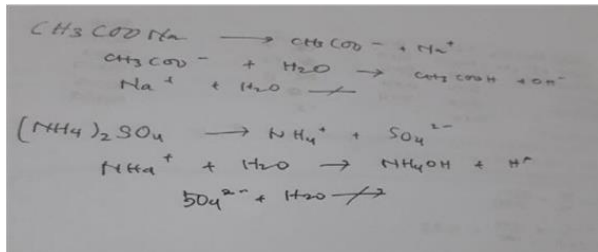 CH3COONa → CH3COO⁻ + Na⁺
CH3COO⁻ + H2O → CH3COOH + OH⁻
Na⁺ + H2O ↛
(NH4)2SO4 → NH4⁺ + SO4²⁻
NH4⁺ + H2O → NH4OH + H⁺
SO4²⁻ + H2O ↛